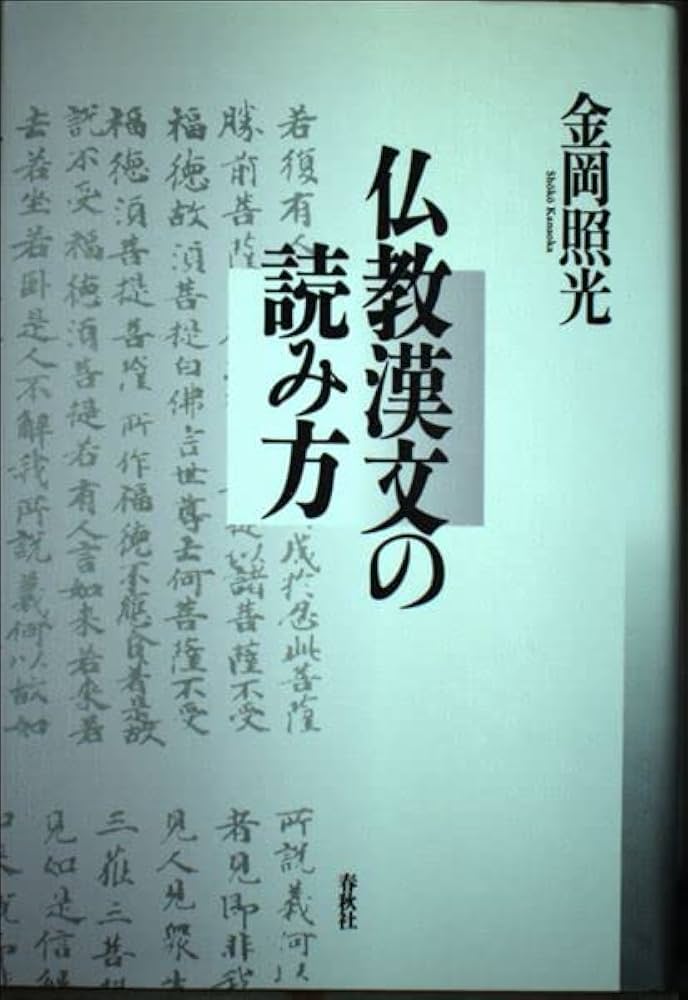 金岡照光
Shōkō Kanaoka
仏教漢文の
読み方
春秋社
若復有人 成於忍此菩薩
勝前菩薩 以諸菩薩不受
福徳故須菩提白佛言世尊云何菩薩不受
福徳須菩提菩薩所作福徳不應貪著是故
説不受福徳須菩提若有人言如来若来若
去若坐若卧是人不解我所説義何以故如
所説義何以
者見即非我
見人見衆
三藐三菩
見如是信